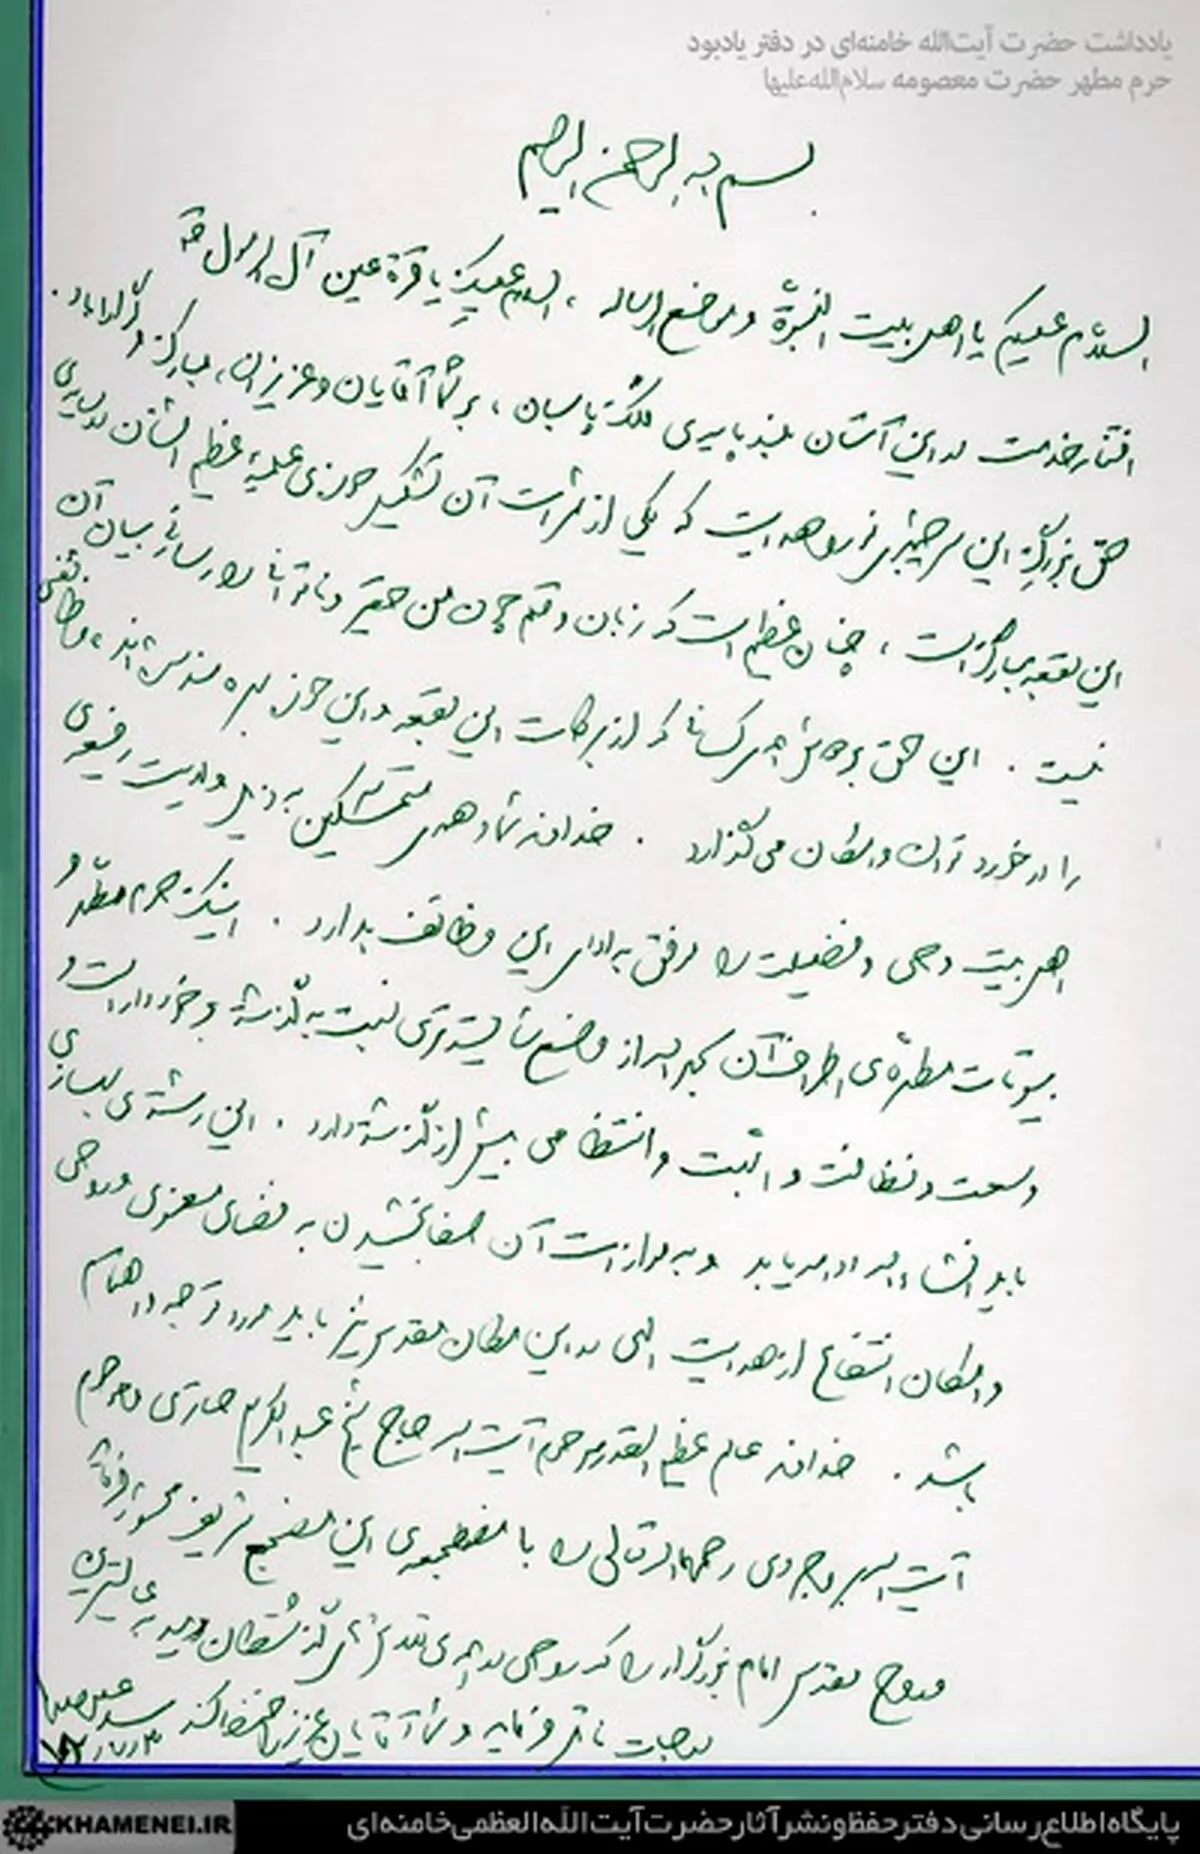 یادداشت حضرت آیت‌الله خامنه‌ای در دفتر یادبود
حرم مطهر حضرت معصومه سلام‌الله‌علیها
بسم الله الرحمن الرحیم
السلام علیکم یا اهل بیت النبوّة و موضع الرساله ، السلام علیکِ یا قرة عین آل الرسول
افتخار خدمت در این آستان بلند پایه‌ی ملک پاسبان ، بر شما آقایان و عزیزان، مبارک و گوارا باد .
حق بزرگ این سرچشمه‌ی نور و هدایت که یکی از ثمرات آن تشکیل حوزه‌ی علمیه‌ی عظیم الشأن در
این بقعه مبارک است ، چنان عظیم است که زبان و قلم چون من حقیر و ناتوانی را رسای بیان آن
نیست . این حق بر دوش همه‌ی کسانی که از برکات این بقعه و این حوزه بهره‌مند شده‌اند ، وظائفی
را در خورد توان و امکان می‌گذارد . خداوند شما و همه‌ی متمسّکین به ذیل ولایت رفیعه‌ی
اهل بیت وحی و فضیلت را موفق به ادای این وظائف بدارد . اینک حرم مطهّر و
بیوتات مطهره‌ی اطراف آن بحمدالله از وضع شایسته‌تری نسبت به گذشته برخوردار است و
وسعت و نظافت و ابّهت و انتظامی بیش از گذشته دارد . این رشته‌ی بسازی
باید انشاءالله ادامه یابد و به موازات آن صفا بخشیدن به فضای معنوی و روحی
و امکان انتفاع از هدایت الهی در این مکان مقدس نیز باید مورد توجه و اهتمام
باشد . خداوند عالم عظیم القدر مرحوم آیت الله حاج شیخ عبدالکریم حائری و مرحوم
آیت الله بروجردی رحمهماالله تعالی را با مضطجعه‌ی این مضجع شریف محشور فرماید
و روح مقدس امام بزرگوار را که روحی در همه‌ی گذشتگان به عالیترین
درجات نائل فرماید و شما آقایان عزیز را حفظ کند
سید علی خامنه‌ای
KHAMENEI.IR
پایگاه اطلاع‌رسانی دفتر حفظ و نشر آثار حضرت آیت‌الله‌العظمی خامنه‌ای